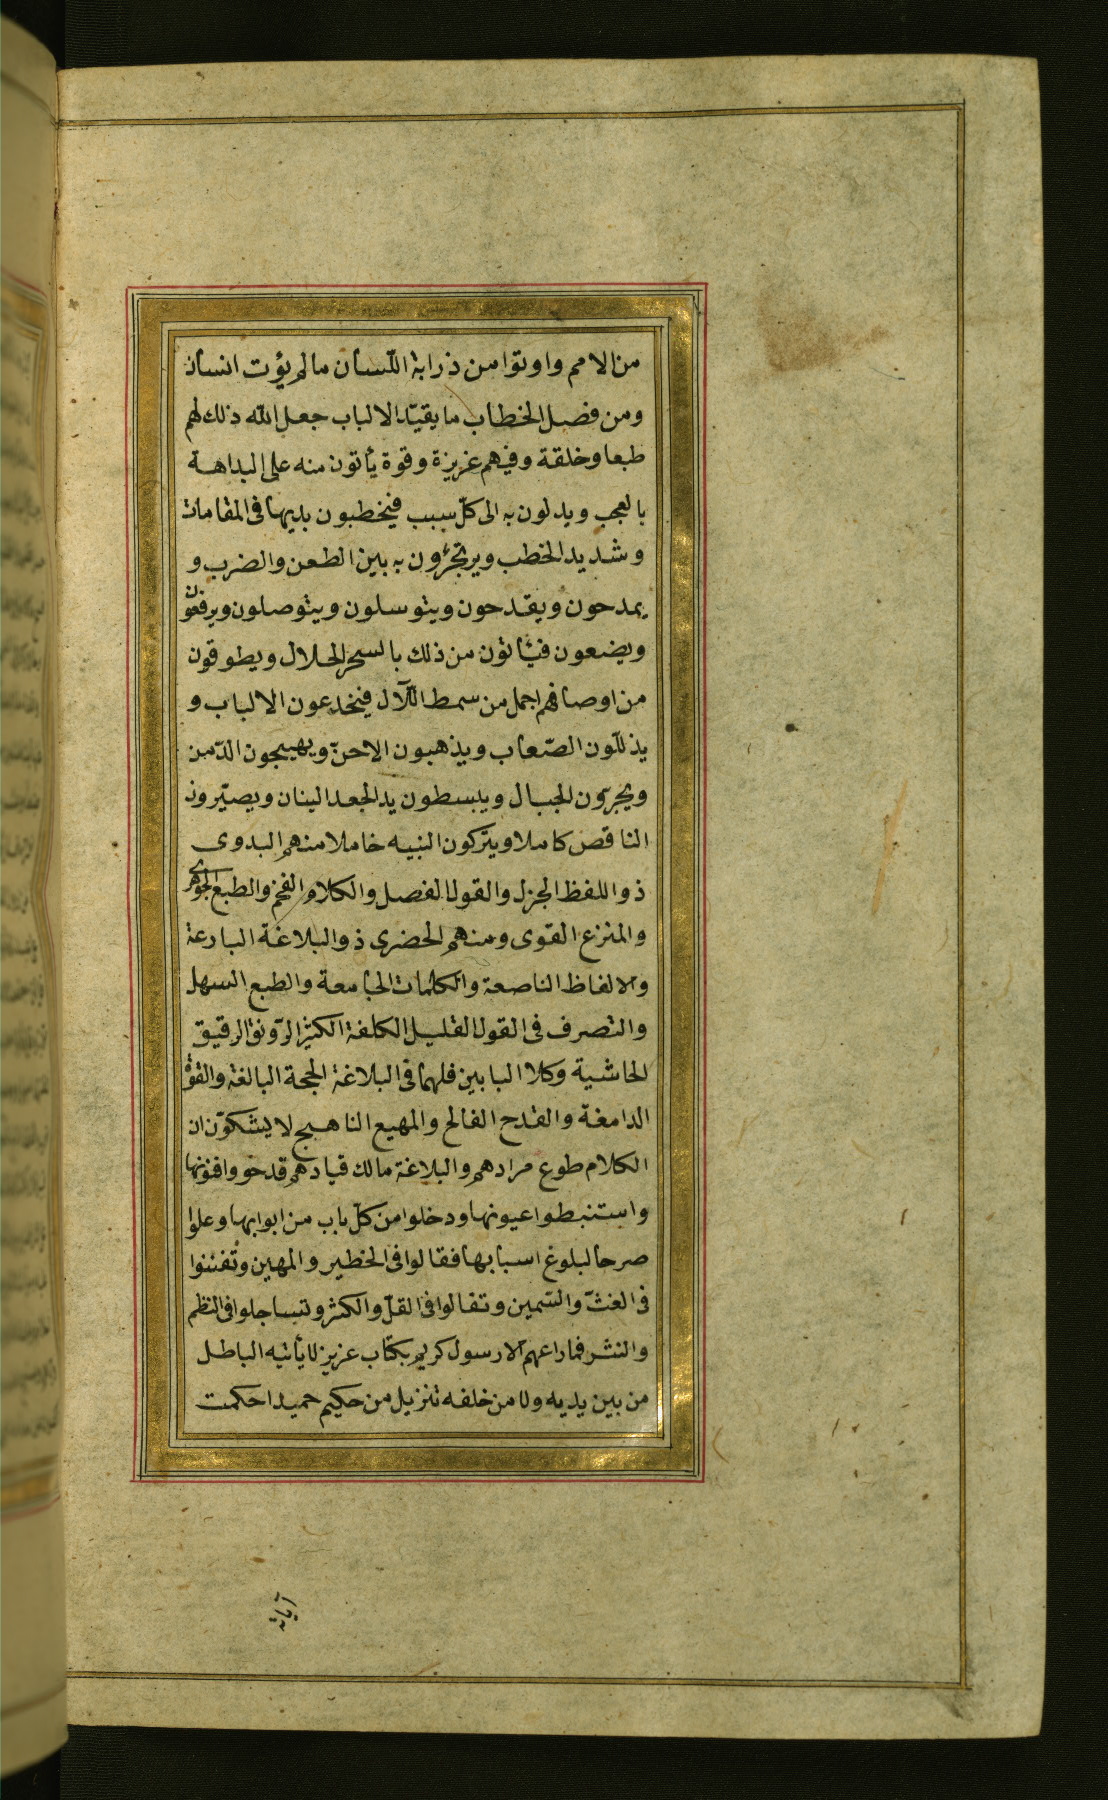 من الامم واوتوا من ذرابة اللّسان مالم يؤت انسان
ومن فصل الخطاب ما يقيّد الالباب جعل الله ذلك لهم
طبعا وخلقة وفيهم غريزة وقوة يأتون منه على البداهة
بالعجب ويدلون به الى كلّ سبب فيخطبون بديها فى المقامات
وشديد الخطب ويرتجزون به بين الطعن والضرب و
يمدحون ويقدحون ويتوسلون ويتوصلون ويرفعون
ويضعون فيأتون من ذلك بالسحر الحلال ويطوقون
من اوصافهم اجمل من سمط اللآل فيخدعون الالباب و
يذللّون الصّعاب ويذهبون الاحنّ ويهيجون الدّمن
ويجرّون الجبال ويبسطون يد الجعد البنان ويصيّرون
الناقص كاملا ويتركون النبيه خاملا منهم البدوى
ذو اللفظ الجزل والقول الفصل والكلام الفخم والطبع الجوهرى
والمنزع القوى ومنهم الحضرى ذو البلاغة البارعة
والالفاظ الناصعة والكلمات الجامعة والطبع السهل
والتصرف فى القول القليل الكلفة الكثير الرّونق الرقيق
الحاشية وكلا البابين فلهما فى البلاغة الحجة البالغة والقوة
الدامغة والقدح الفالح والمهيع الناهج لا يشكوّن ان
الكلام طوع مرادهم والبلاغة مالك قيادهم قد حووا فنونها
واستنبطوا عيونها ودخلوا من كلّ باب من ابوابها وعلوا
صرحا لبلوغ اسبابها فقالوا فى الخطير والمهين وتفننوا
فى الغثّ والسّمين وتقالوا فى القلّ والكثر وتساجلوا فى النظم
والنثر فما راعهم الا رسول كريم بكتاب عزيز لا يأتيه الباطل
من بين يديه ولا من خلفه تنزيل من حكيم حميد احكمت
آياته